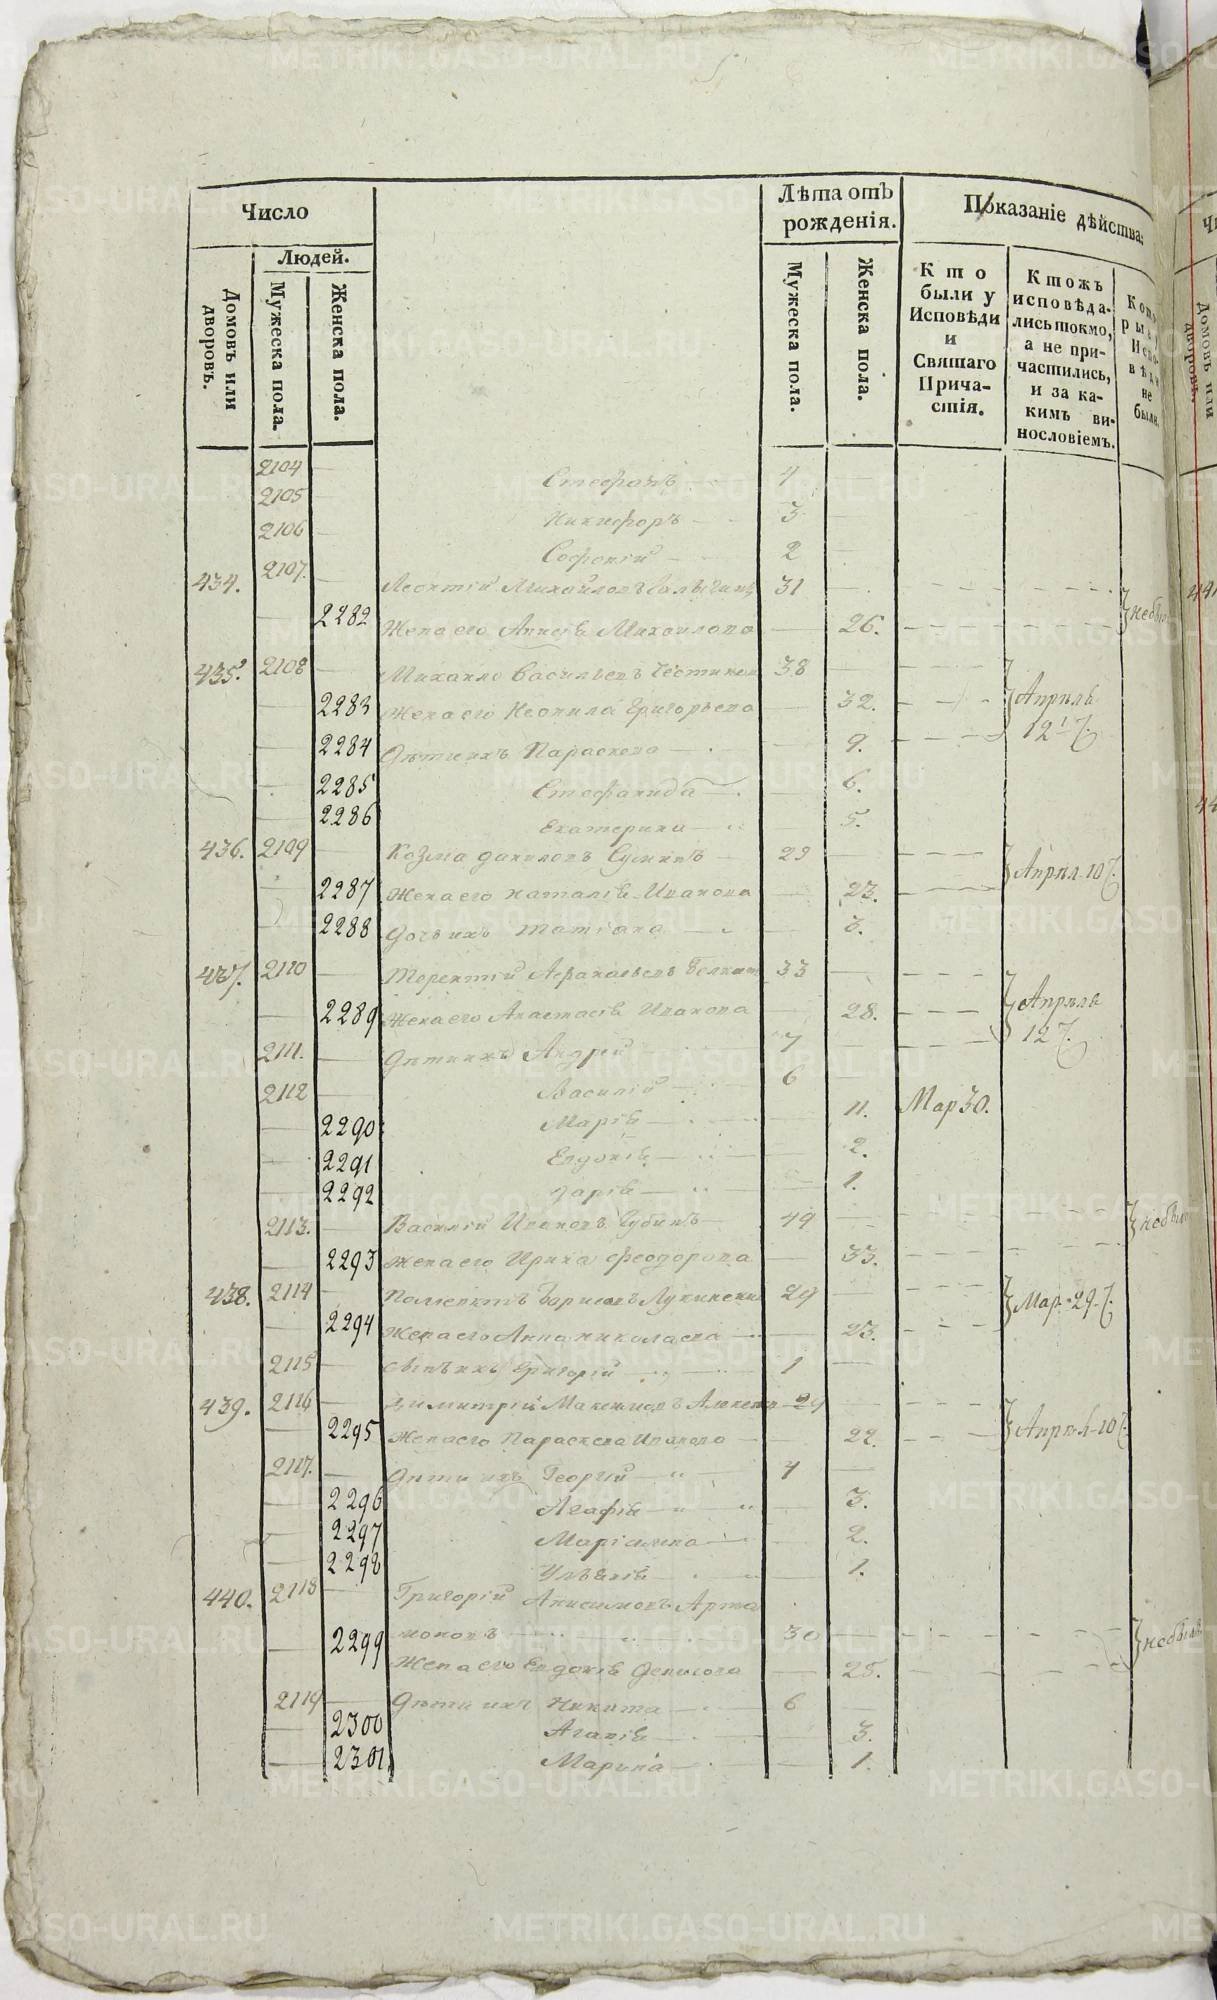 Число
Лѣта отъ рожденія.
Показаніе дѣйства:
Людей.
Домовъ или дворовъ.
Мужеска пола.
Женска пола.
Мужеска пола.
Женска пола.
Кто были у Исповѣди и Святаго Причастія.
Ктожъ исповѣдались токмо, а не причастились, и за каким винословіемъ.
2104 Стефанъ 4
2105 Никифоръ 3
2106 Софоній 2
434. 2107. Леонтій Михайловъ 31
2282 Жена его Михайлова 26. небыли
435. 2108 Михайло Васильевъ 38
2283 Жена его Неонила Григорьева 32. Апрѣль 12
2284 Дѣти ихъ Параскева 9.
2285 Стефанида 6.
2286 Екатерина 5.
436. 2109 Козма Даниловъ 29
2287 Жена его Наталія Иванова 23. Апрѣл. 10
2288 Дочь ихъ Татіана 3.
437. 2110 Терентій 33
2289 Жена его Анастасія Иванова 28. Апрѣля 12
2111. Дѣти ихъ Андрей 7
2112 Василій 6
2290 Марія 11. Мар 30.
2291 Евдокія 2.
2292 Дарія 1.
2113. Василій Ивановъ Губинъ 49 небыли
2293 Жена его Ирина Феодорова 33.
438. 2114 Борисовъ 29 Мар. 29
2294 Жена его Анна Николаева 23.
2115 Сынъ ихъ Григорій 1
439. 2116 Димитрій Максимовъ 29
2295 Жена его Параскева Иванова 22. Апрѣл 10
2117. Дѣти ихъ Георгій 4
2296 Агафія 3.
2297 Маріамна 2.
2298 Ульянія 1.
440. 2118 Григорій Анисимовъ Арта
моновъ 30
2299 Жена его Евдокія Денисова 25. небыли
2119 Дѣти ихъ Никита 6
2300 Агапія 3.
2301 Марина 1.
METRIKI.GASO-URAL.RU